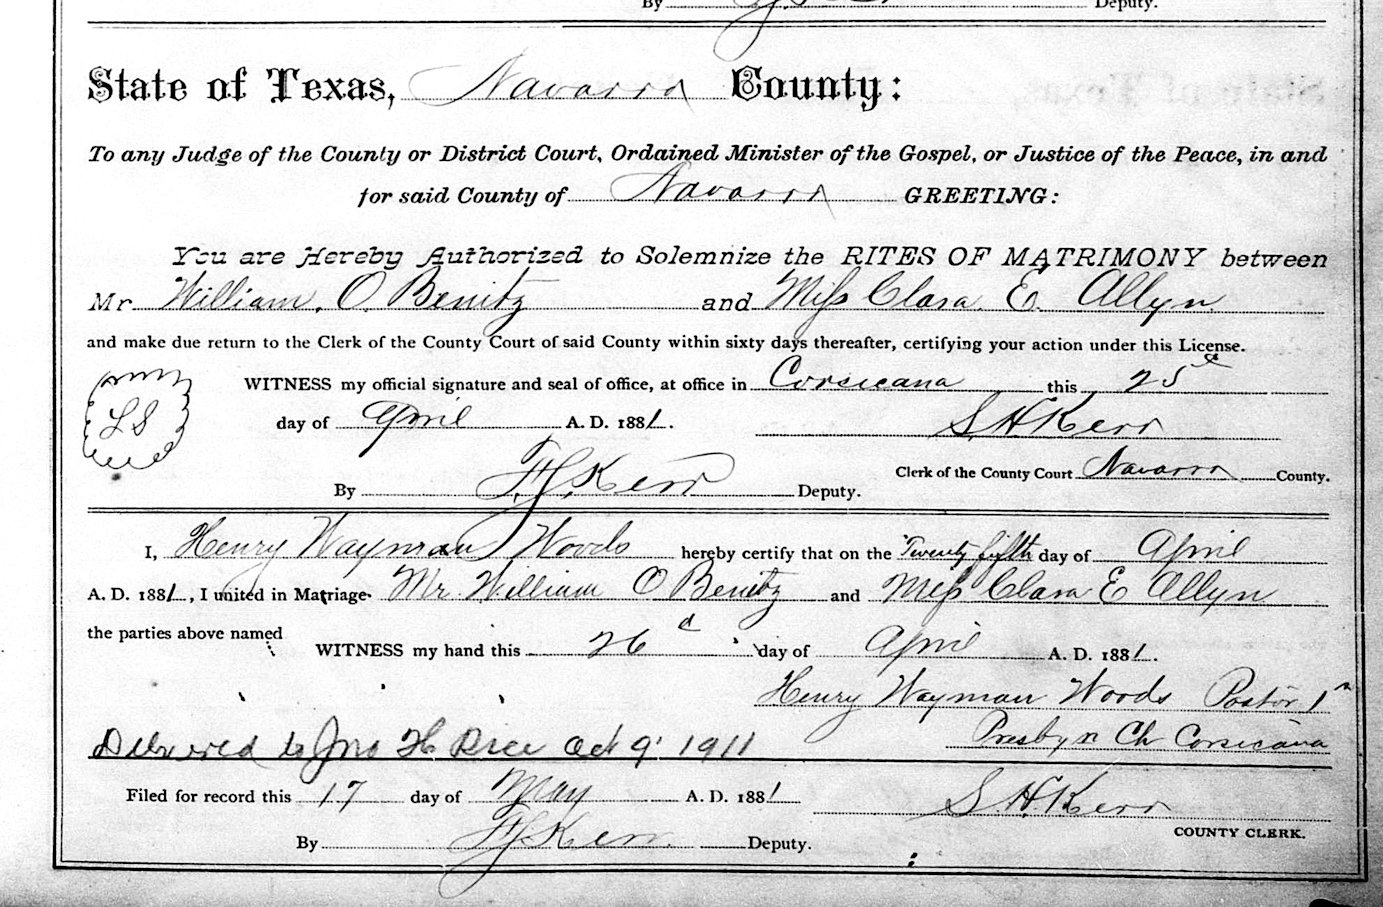 By Deputy.
State of Texas, Navarro County:
To any Judge of the County or District Court, Ordained Minister of the Gospel, or Justice of the Peace, in and
for said County of Navarro GREETING:
You are Hereby Authorized to Solemnize the RITES OF MATRIMONY between
Mr. William. O. Benitz and Miss Clara E. Allyn
and make due return to the Clerk of the County Court of said County within sixty days thereafter, certifying your action under this License.
WITNESS my official signature and seal of office, at office in Corsicana this 25th
LS
day of April A. D. 1881.
S. H. Kerr
Clerk of the County Court Navarro County.
By F. J. Kerr Deputy.
I, Henry Wayman Woods hereby certify that on the Twenty fifth day of April
A. D. 1881, I united in Marriage Mr. William O Benitz and Miss Clara E Allyn
the parties above named
WITNESS my hand this 26th day of April A. D. 1881.
Henry Wayman Woods Pastor 1st
Presbyn Ch Corsicana
Delivered to Jno H Rice Oct 9 1911
Filed for record this 17 day of May A. D. 1881
S. H. Kerr
COUNTY CLERK.
By F J Kerr Deputy.